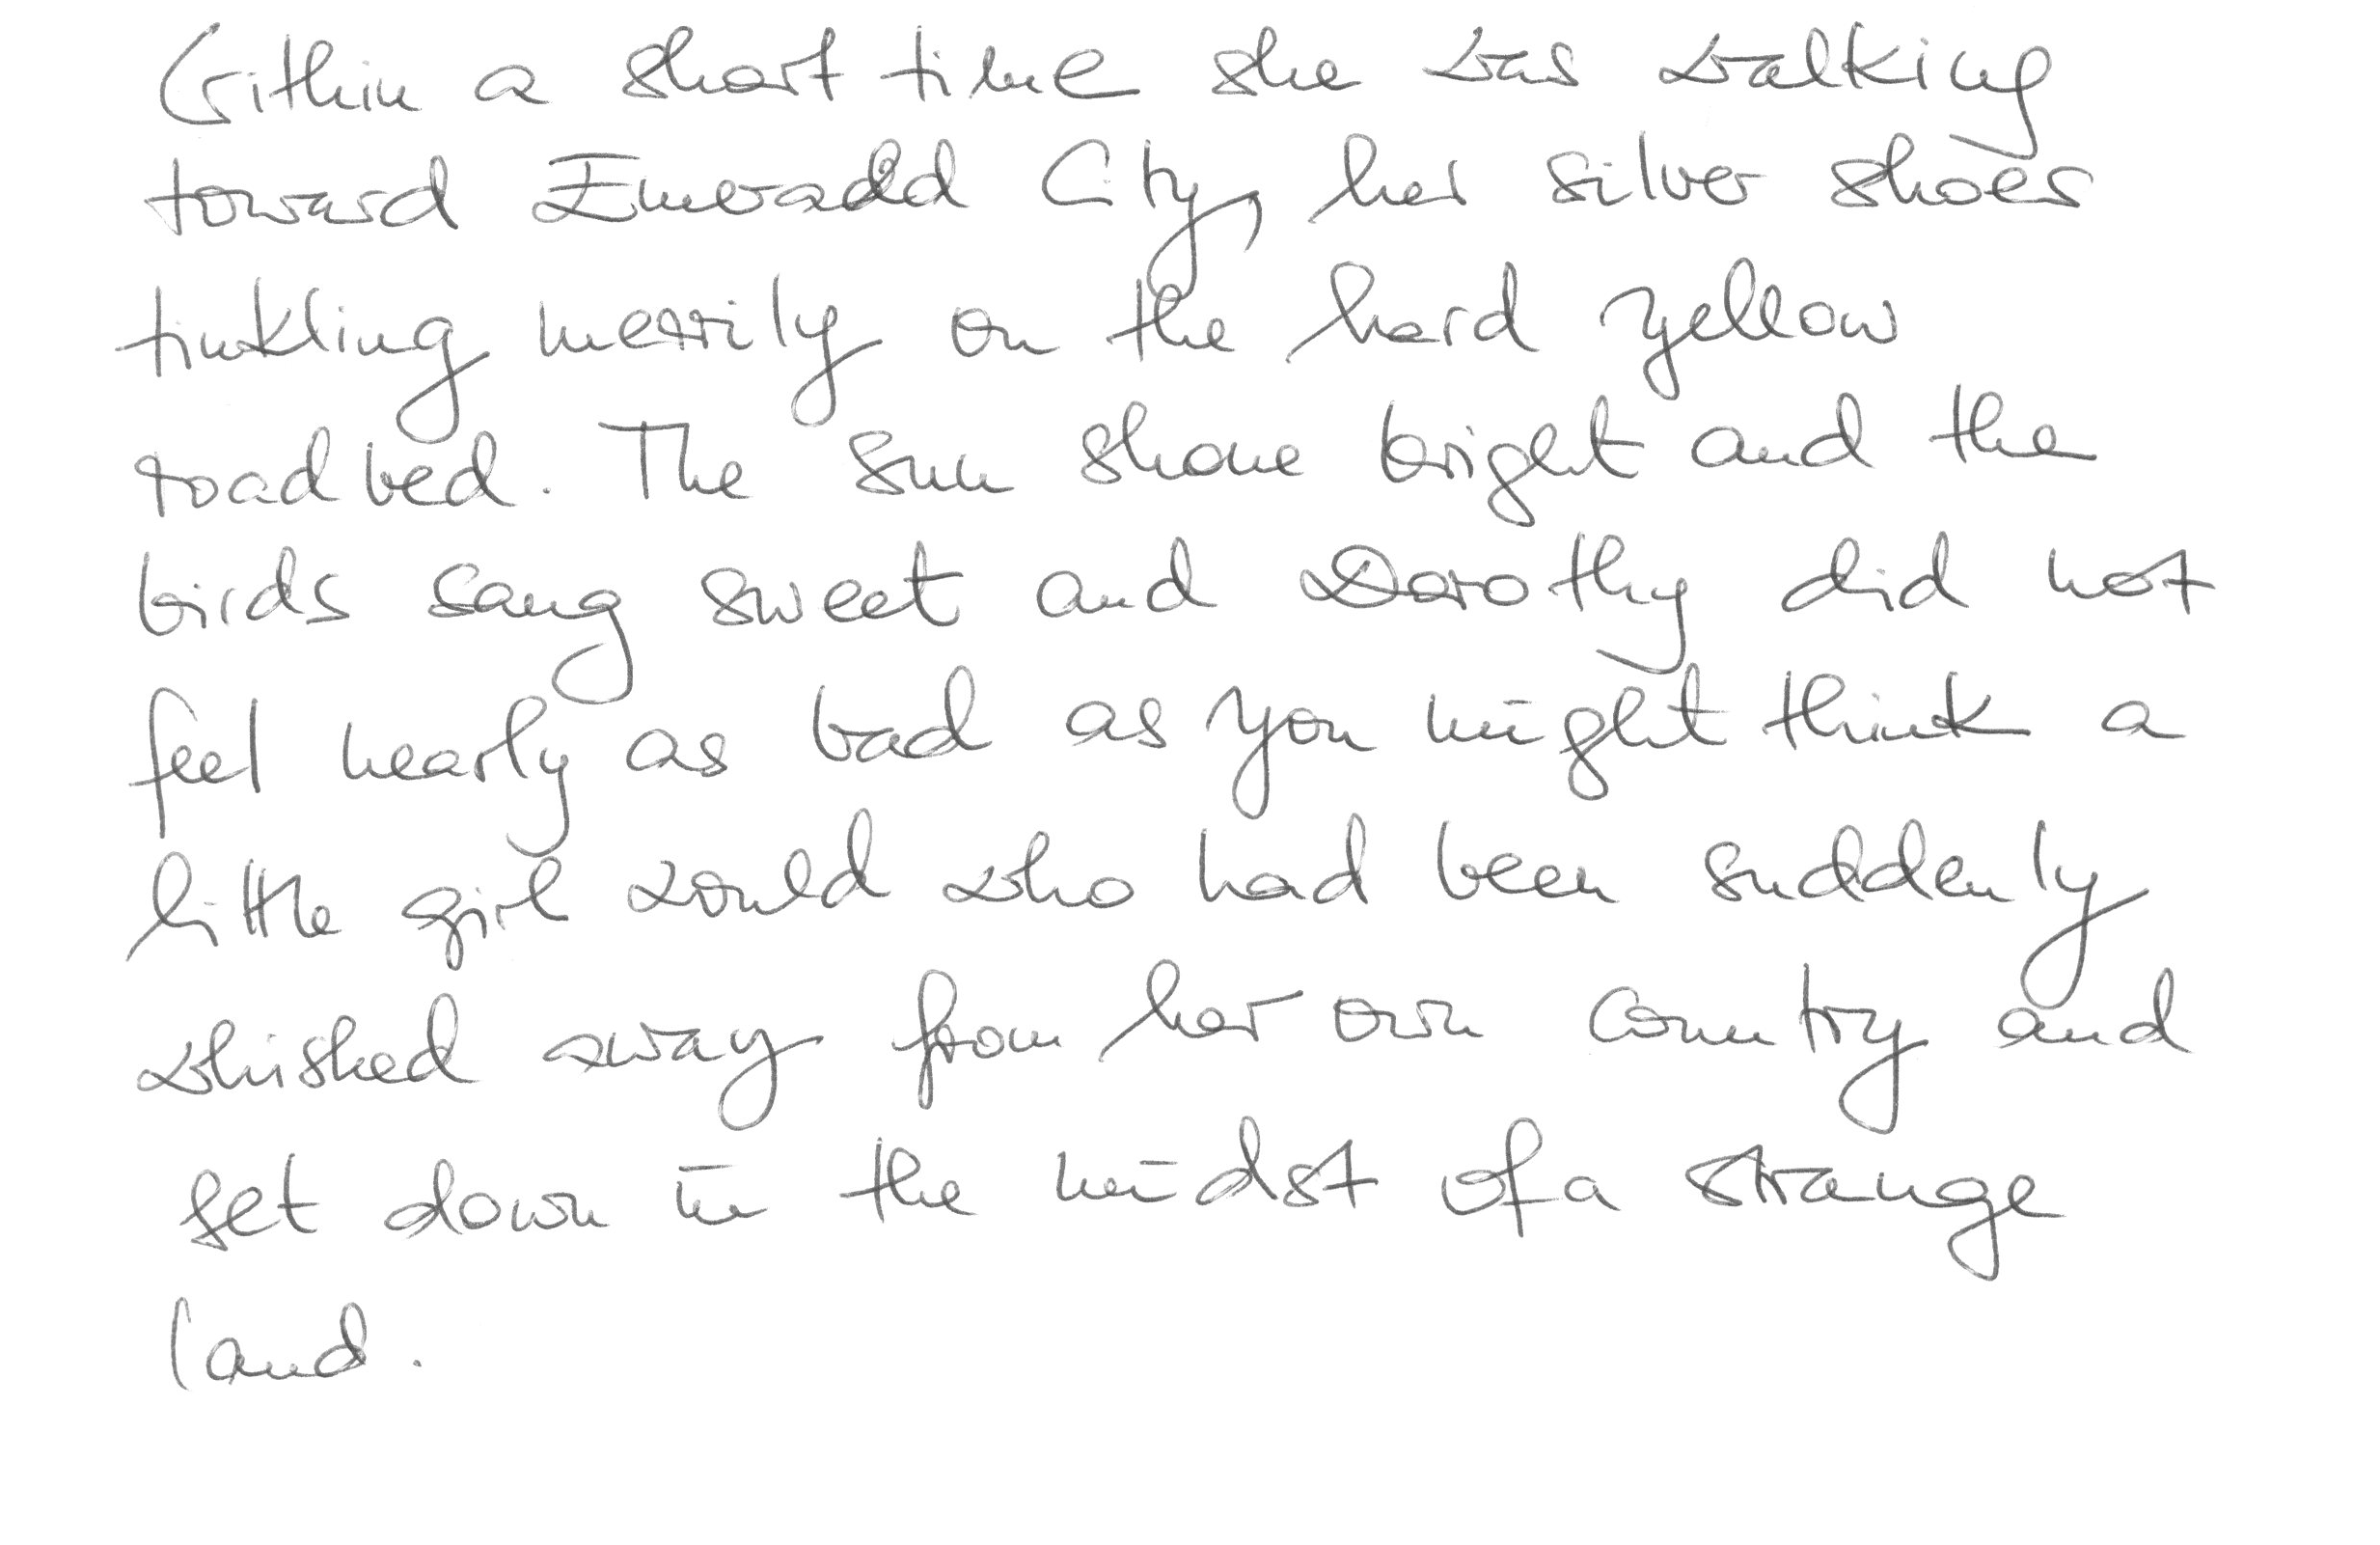 Within a short time she was walking
toward Emerald City, her silver shoes
tinkling merrily on the hard yellow
roadbed. The sun shone bright and the
birds sang sweet and Dorothy did not
feel nearly as bad as you might think a
little girl would who had been suddenly
whished away from her own country and
set down in the midst of a strange
land.